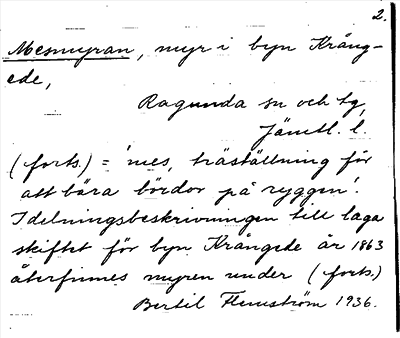 2.
Mesmyran, myr i byn Krång-
ede,
Ragunda sn och tg,
Jämtl. l.
(forts.) = 'mes, träställning för
att bära bördor på ryggen'.
I delningsbeskrivningen till laga
skiftet för byn Krångede år 1863
återfinnes myren under (forts.)
Bertil Flemström 1936.